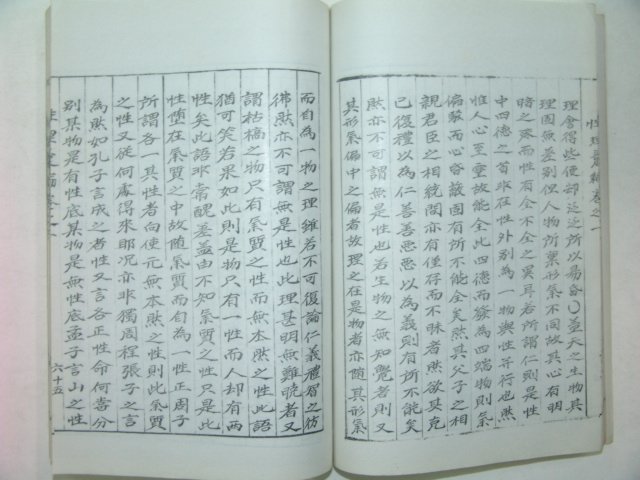 性理彙編卷之一
理會得些便却泛泛所以易昏〇蓋天之生物其
理固無差別但人物所稟形氣不同故其心有明
暗之殊而性有全不全之異耳若所謂仁則是性
中四德之首非在性外別爲一物與性並行也然
惟人心至靈故能全此四德而發爲四端物則氣
偏駁而心昏蔽固有所不能全矣然其父子之相
親君臣之相統間亦有僅存而不昧者然欲其克
己復禮以爲仁善善惡惡以爲義則有所不能矣
然亦不可謂無是性也若生物之無知覺者則又
其形氣偏中之偏者故理之在是物者亦隨其形氣
而自爲一物之理雖若不可復論仁義禮智之彷
彿然亦不可謂無是性也此理甚明無難曉者又
謂枯槁之物只有氣質之性而無本然之性此語
猶可笑若果如此則是物只有一性而人却有兩
性矣此語非常醜差蓋由不知氣質之性只是此
性墮在氣質之中故隨氣質而自爲一性正周子
所謂各一其性者向使元無本然之性則此氣質
之性又從何處得來耶况亦非獨周程張子之言
為然如孔子言成之者性又言各正性命何嘗分
別某物是有性底某物是無性底孟子言山之性
性理彙編卷之一
六十五